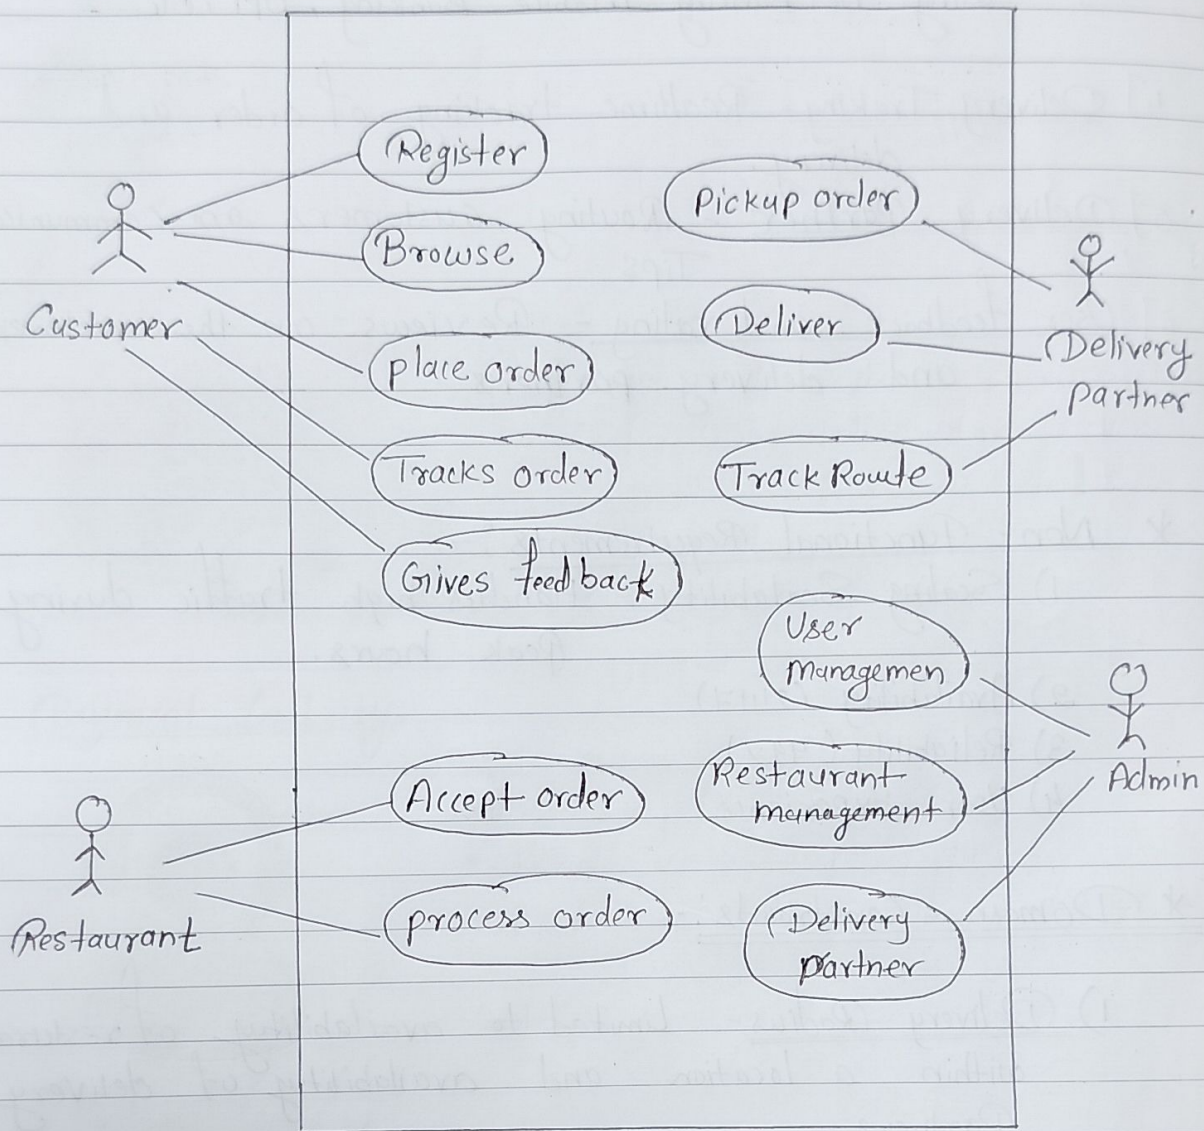 Register
Browse
Customer
Place order
Tracks order
Gives feedback
Pickup order
Deliver
Delivery
partner
Track Route
User
managemen
Restaurant
management
Admin
Delivery
partner
Accept order
process order
Restaurant